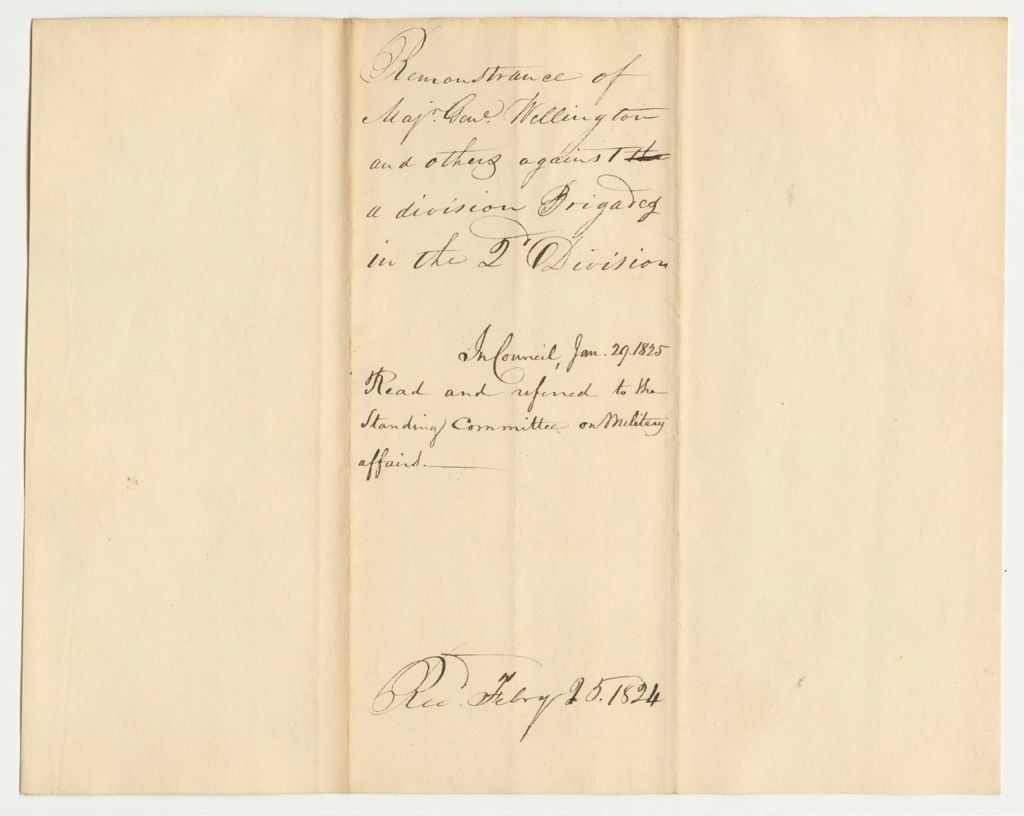 Remonstrance of
Majr. Genl. Wellington
and others against the
a division Brigades
in the 2d Division
In Council, Jan. 29. 1825
Read and referred to the
Standing Committee on Military
affairs.
Recd. Febry 25. 1824